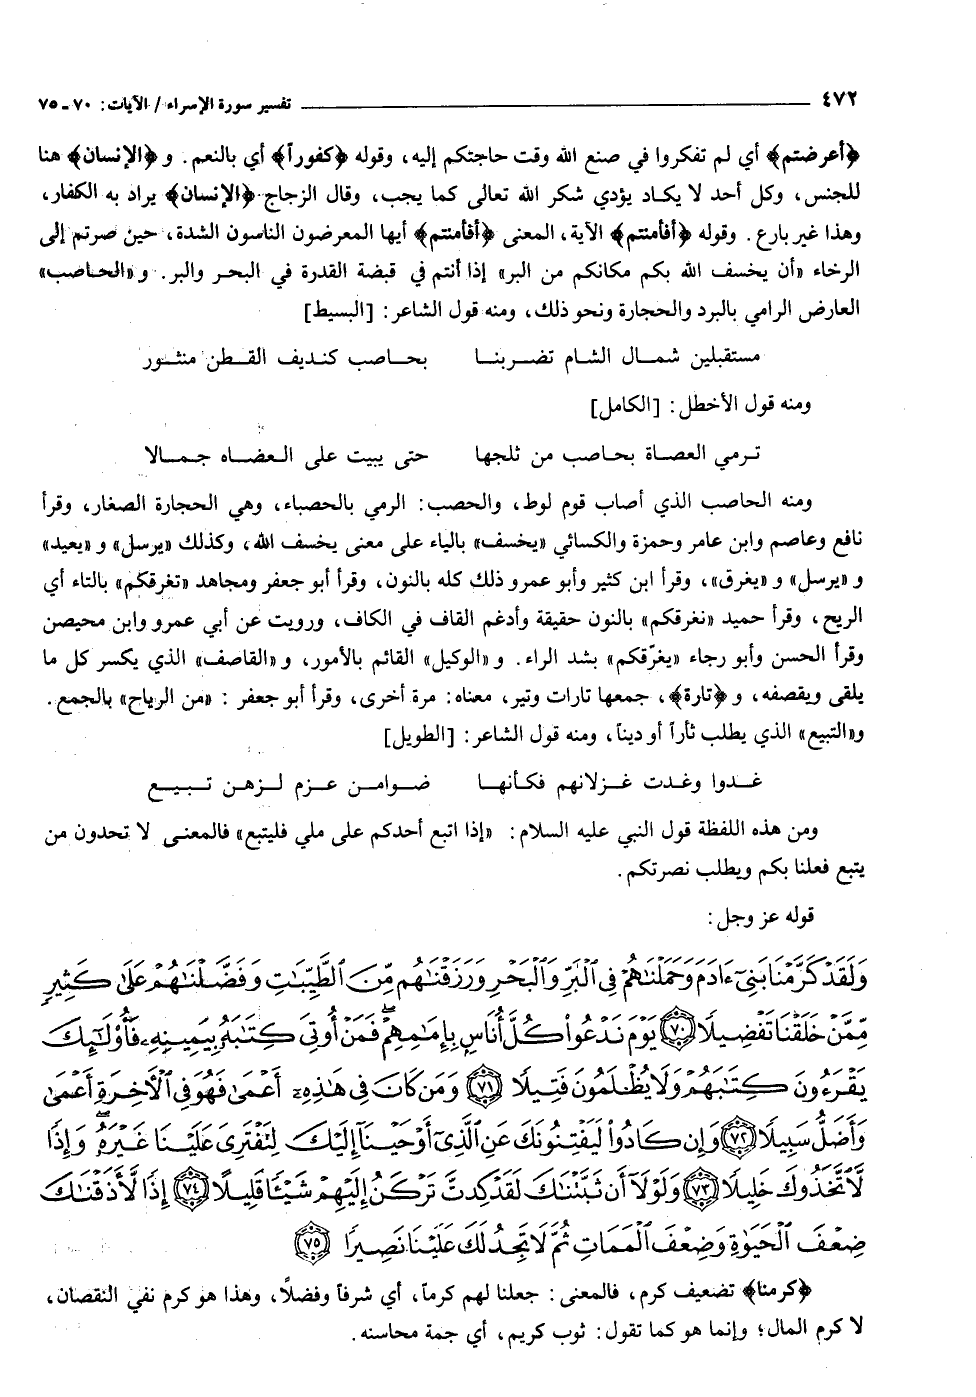 ٤٧٢ ـــــــ تفسير سورة الإسراء / الآيات: ٧٠ ـ ٧٥
﴿أعرضتم﴾ أي لم تفكروا في صنع الله وقت حاجتكم إليه، وقوله ﴿كفوراً﴾ أي بالنعم. و ﴿الإنسان﴾ هنا
للجنس، وكل أحد لا يكاد يؤدي شكر الله تعالى كما يجب، وقال الزجاج ﴿الإنسان﴾ يراد به الكفار،
وهذا غير بارع. وقوله ﴿أفأمنتم﴾ الآية، المعنى ﴿أفأمنتم﴾ أيها المعرضون الناسون الشدة، حين صرتم إلى
الرخاء «أن يخسف الله بكم مكانكم من البر» إذا أنتم في قبضة القدرة في البحر والبر. و«الحاصب»
العارض الرامي بالبرد والحجارة ونحو ذلك، ومنه قول الشاعر: [البسيط]
مستقبلين شمال الشام تضربنا بحاصب كنديف القطن منثور
ومنه قول الأخطل: [الكامل]
ترمي العصاة بحاصب من ثلجها حتى يبيت على العضاه جمالا
ومنه الحاصب الذي أصاب قوم لوط، والحصب: الرمي بالحصباء، وهي الحجارة الصغار، وقرأ
نافع وعاصم وابن عامر وحمزة والكسائي «يخسف» بالياء على معنى يخسف الله، وكذلك «يرسل» و «يعيد»
و «يرسل» و «يغرق»، وقرأ ابن كثير وأبو عمرو ذلك كله بالنون، وقرأ أبو جعفر ومجاهد «تغرقكم» بالتاء أي
الريح، وقرأ حميد «نغرقكم» بالنون حقيقة وأدغم القاف في الكاف، ورويت عن أبي عمرو وابن محيصن
وقرأ الحسن وأبو رجاء «يغرّقكم» بشد الراء. و«الوكيل» القائم بالأمور، و«القاصف» الذي يكسر كل ما
يلقى ويقصفه، و ﴿تارة﴾، جمعها تارات وتير، معناه: مرة أخرى، وقرأ أبو جعفر : «من الرياح» بالجمع.
و«التبيع» الذي يطلب ثأراً أو ديناً، ومنه قول الشاعر: [الطويل]
غدوا وغدت غزلانهم فكأنها ضوامن عزم لزهن تبيع
ومن هذه اللفظة قول النبي عليه السلام: «إذا اتبع أحدكم على ملي فليتبع» فالمعنى لا تحدون من
يتبع فعلنا بكم ويطلب نصرتكم.
قوله عز وجل:
وَلَقَدْ كَرَّمْنَا بَنِيٓ ءَادَمَ وَحَمَلْنَاهُمْ فِي ٱلْبَرِّ وَٱلْبَحْرِ وَرَزَقْنَاهُم مِّنَ ٱلطَّيِّبَاتِ وَفَضَّلْنَاهُمْ عَلَىٰ كَثِيرٍ
مِّمَّنْ خَلَقْنَا تَفْضِيلًا ﴿٧٠﴾ يَوْمَ نَدْعُوا۟ كُلَّ أُنَاسٍۭ بِإِمَامِهِمْ ۖ فَمَنْ أُوتِيَ كِتَابَهُۥ بِيَمِينِهِۦ فَأُو۟لَـٰٓئِكَ
يَقْرَءُونَ كِتَابَهُمْ وَلَا يُظْلَمُونَ فَتِيلًا ﴿٧١﴾ وَمَن كَانَ فِي هَـٰذِهِۦٓ أَعْمَىٰ فَهُوَ فِي ٱلْـَٔاخِرَةِ أَعْمَىٰ
وَأَضَلُّ سَبِيلًا ﴿٧٢﴾ وَإِن كَادُوا۟ لَيَفْتِنُونَكَ عَنِ ٱلَّذِيٓ أَوْحَيْنَآ إِلَيْكَ لِتَفْتَرِيَ عَلَيْنَا غَيْرَهُۥ ۖ وَإِذًا
لَّٱتَّخَذُوكَ خَلِيلًا ﴿٧٣﴾ وَلَوْلَآ أَن ثَبَّتْنَـٰكَ لَقَدْ كِدتَّ تَرْكَنُ إِلَيْهِمْ شَيْـًٔا قَلِيلًا ﴿٧٤﴾ إِذًا لَّأَذَقْنَـٰكَ
ضِعْفَ ٱلْحَيَوٰةِ وَضِعْفَ ٱلْمَمَاتِ ثُمَّ لَا تَجِدُ لَكَ عَلَيْنَا نَصِيرًا ﴿٧٥﴾
﴿كرمنا﴾ تضعيف كرم، فالمعنى: جعلنا لهم كرماً، أي شرفاً وفضلاً، وهذا هو كرم نفي النقصان،
لا كرم المال؛ وإنما هو كما تقول: ثوب كريم، أي جمة محاسنه.